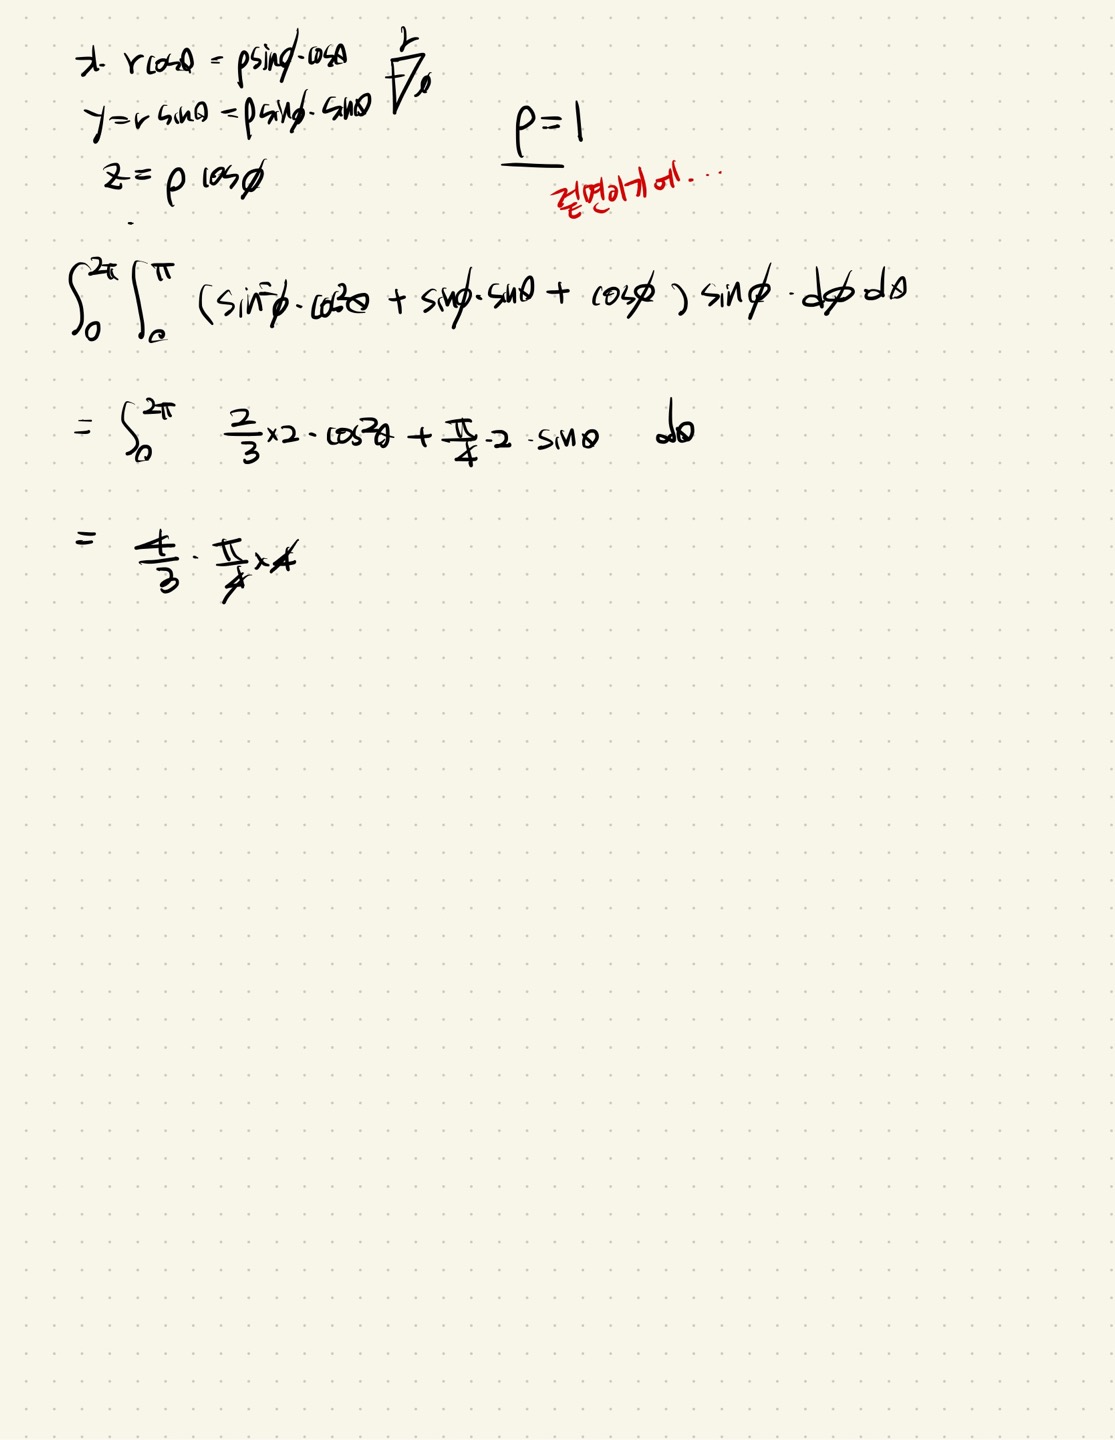 x = r cosθ = ρ sinϕ · cosθ
r
ϕ
y = r sinθ = ρ sinϕ · sinθ
z = ρ cosϕ
ρ = 1
겉면이기에...
∫₀^2π ∫₀^π (sin²ϕ · cos²θ + sinϕ · sinθ + cosϕ) sinϕ · dϕ dθ
= ∫₀^2π 2/3 × 2 · cos²θ + π/4 · 2 · sinθ dθ
= 4/3 · π/4 × 4